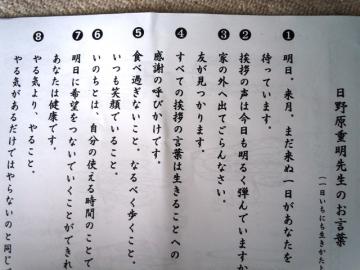 日野原重明先生のお言葉
(一日いちにち生きかた上
❶ 明日、来月、まだ来ぬ一日があなたを
待っています。
❷ 挨拶の声は今日も明るく弾んでいますか
❸ 家の外へ出てごらんなさい。
友が見つかります。
❹ すべての挨拶の言葉は生きることへの
感謝の呼びかけです。
❺ 食べ過ぎないこと。なるべく歩くこと。
いつも笑顔でいること。
❻ いのちとは、自分の使える時間のことで
❼ 明日に希望をつないでいくことができれ
あなたは健康です。
❽ やる気より、やること。
やる気があるだけではやらないのと同じで